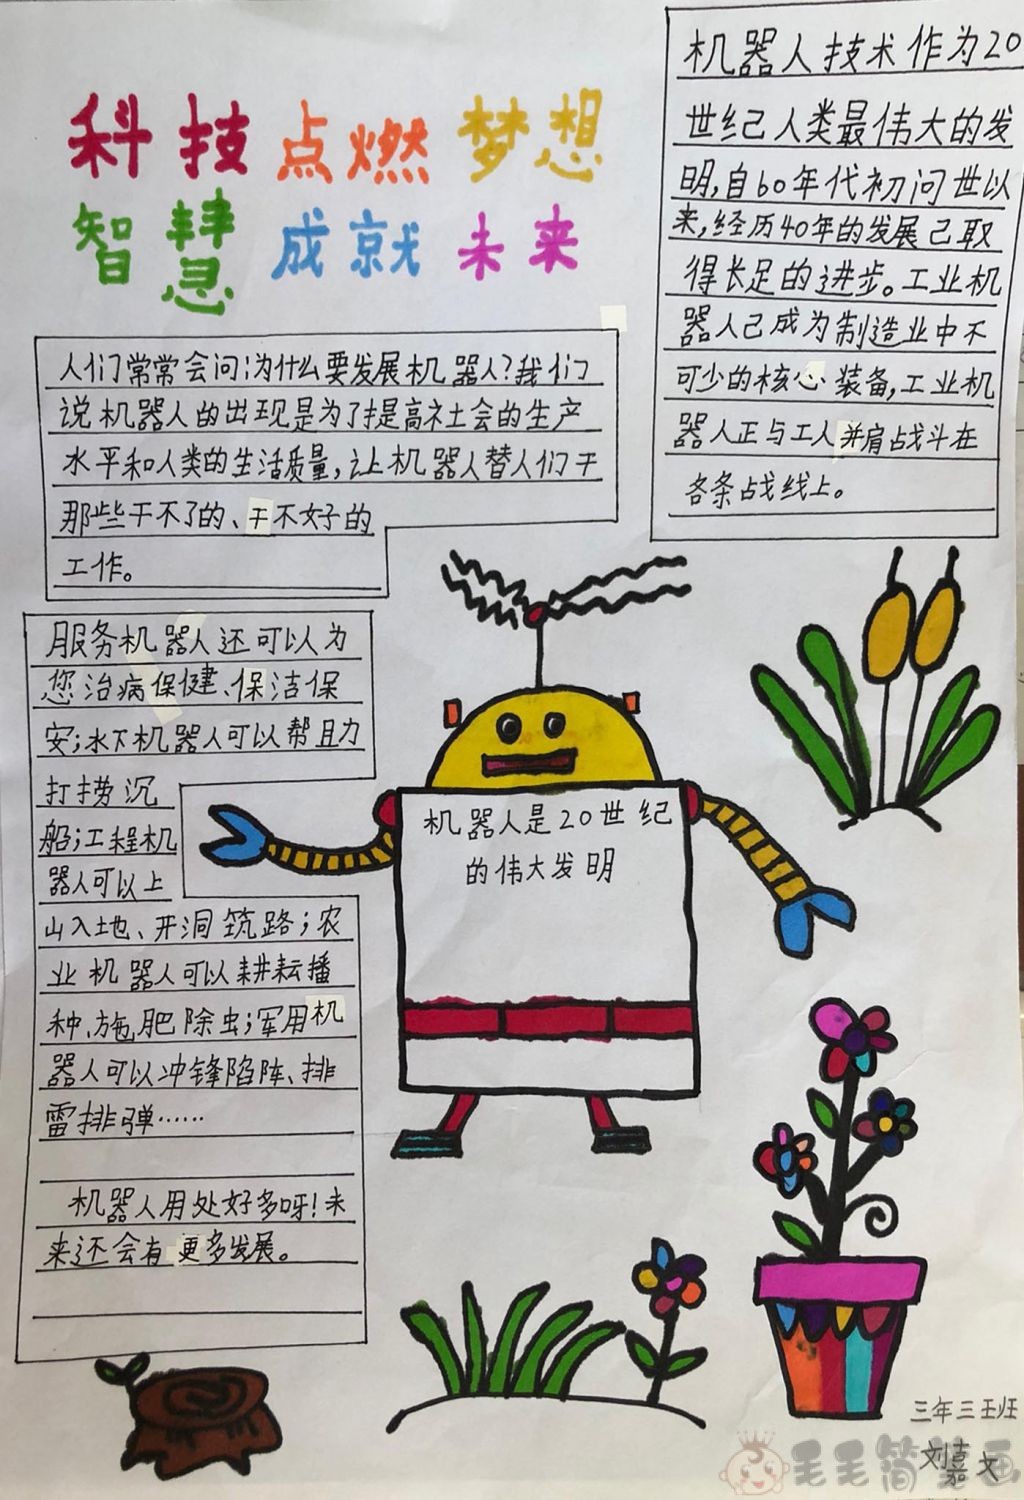 科技点燃梦想
智慧成就未来
机器人技术作为20
世纪人类最伟大的发
明,自60年代初问世以
来,经历40年的发展已取
得长足的进步。工业机
器人已成为制造业中不
可少的核心装备,工业机
器人正与工人并肩战斗在
各条战线上。
人们常常会问:为什么要发展机器人?我们
说机器人的出现是为了提高社会的生产
水平和人类的生活质量,让机器人替人们干
那些干不了的、干不好的
工作。
服务机器人还可以为
您治病保健、保洁保
安;水下机器人可以帮助
打捞沉
船;工程机
器人可以上
山入地、开洞筑路;农
业机器人可以耕耘播
种、施肥除虫;军用机
器人可以冲锋陷阵、排
雷排弹……
机器人用处好多呀!未
来还会有更多发展。
机器人是20世纪
的伟大发明
三年三班
刘嘉文
毛毛简笔画